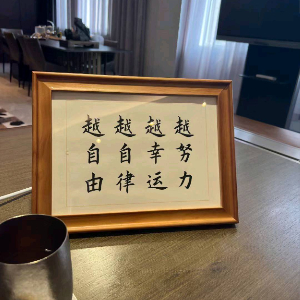 越努力
越幸运
越自律
越自由